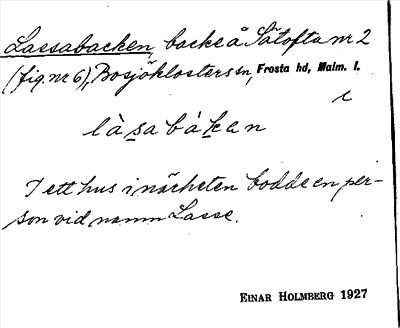 Lassabacken, backe å Sätofta nr 2
(fig. nr 6), Bosjöklosters sn, Frosta hd, Malm. l.
r
làsabákan
I ett hus i närheten bodde en per-
son vid namn Lasse.
EINAR HOLMBERG 1927